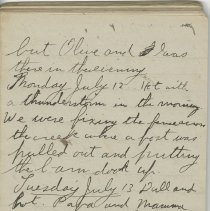 but Olive and I was
there in the evening
Monday July 12 Hot with
a thunderstorm in the morning
We were fixing the fence on
the creek where a post was
pulled out and putting
the barn door up.
Tuesday July 13 Dull and
hot. Papa and Mamma